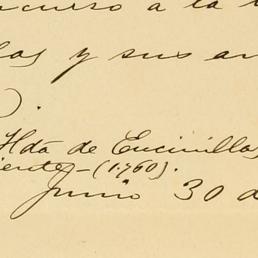 curso a la
y sus
).
Hda de Encinillas
iente-(1.760).
Junio 30 d